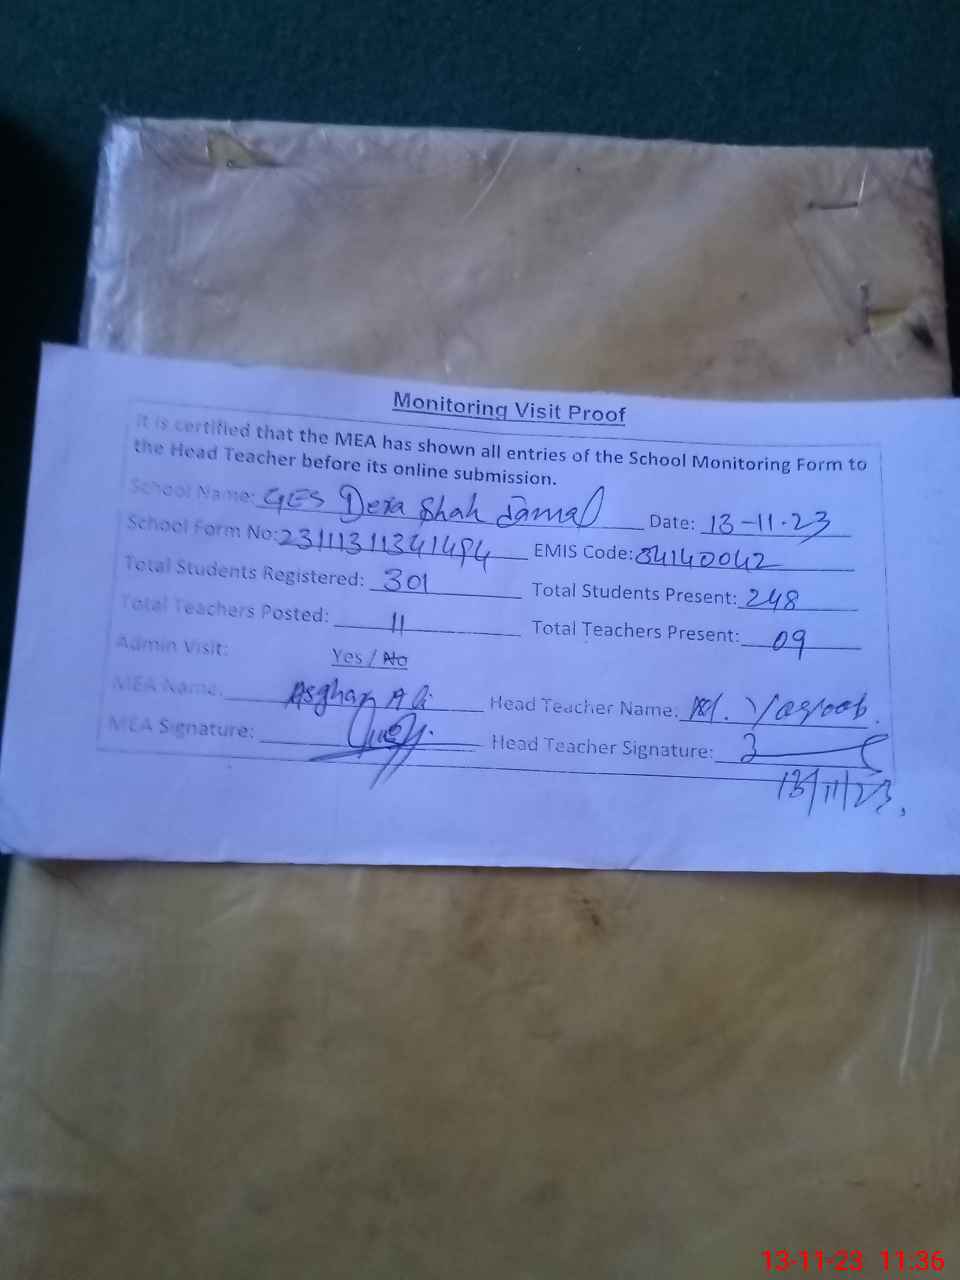 Monitoring Visit Proof
It is certified that the MEA has shown all entries of the School Monitoring Form to
the Head Teacher before its online submission.
School Name: GES Dera Shah Jamal Date: 13-11-23
School Form No: 23111311341494 EMIS Code: 34140042
Total Students Registered: 301 Total Students Present: 248
Total Teachers Posted: 11 Total Teachers Present: 09
Admin Visit: Yes / No
MEA Name: Asghar Ali Head Teacher Name: M. Yaqoob.
MEA Signature: Head Teacher Signature:
13/11/23,
13-11-23 11:36